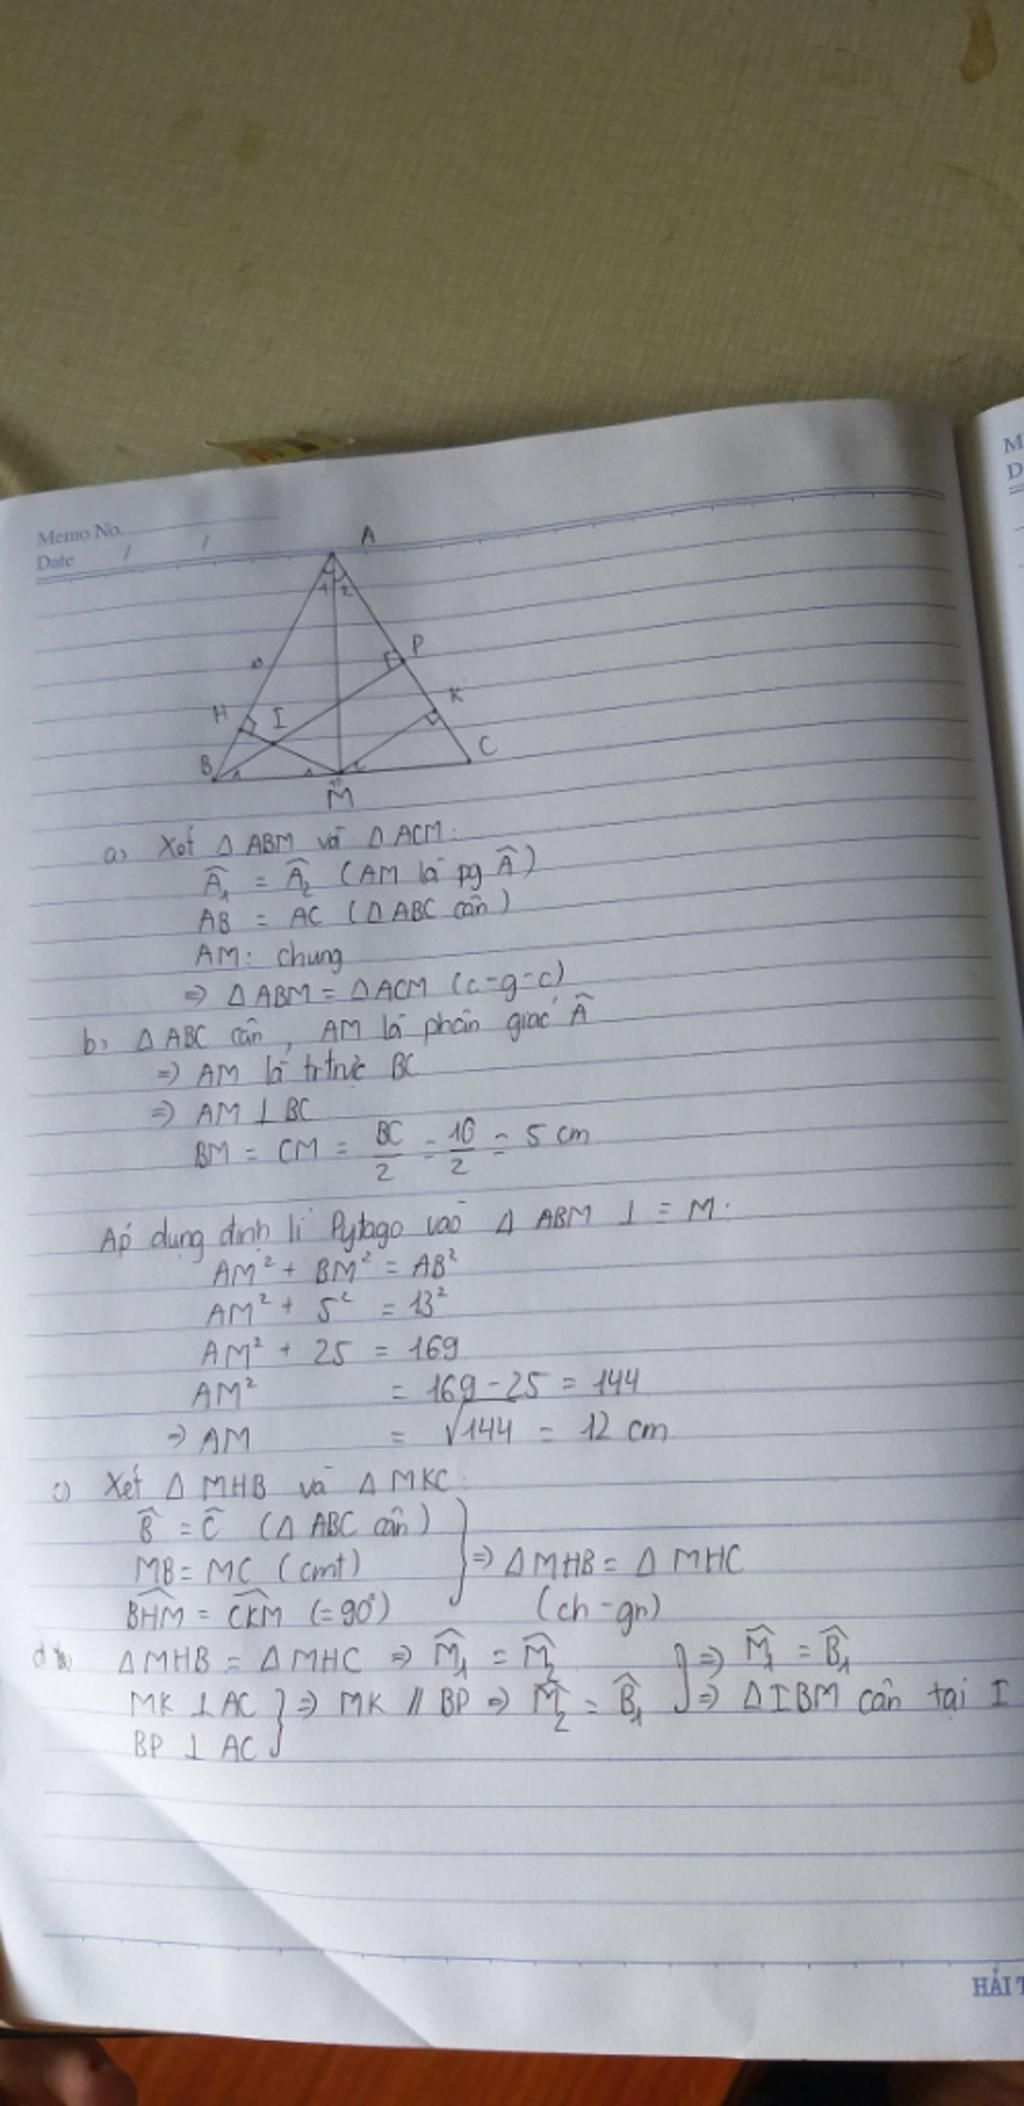 Memo No.
Date / /
M
D
A
1 2
P
K
H
I
B
C
M
a) Xét Δ ABM và Δ ACM:
Â₁ = Â₂ (AM là pg Â)
AB = AC (Δ ABC cân)
AM: chung
=> Δ ABM = Δ ACM (c-g-c)
b, Δ ABC cân, AM là phân giác Â
=> AM là trtrực BC
=> AM ⊥ BC
BM = CM = BC/2 = 10/2 = 5 cm
Áp dụng định lí Pytago vào Δ ABM ⊥ = M:
AM² + BM² = AB²
AM² + 5² = 13²
AM² + 25 = 169
AM² = 169 - 25 = 144
=> AM = √144 = 12 cm
c) Xét Δ MHB và Δ MKC:
B̂ = Ĉ (Δ ABC cân)
MB = MC (cmt) } => Δ MHB = Δ MHC
BHM = CKM (=90°) (ch-gn)
d Δ MHB = Δ MHC => M̂₁ = M̂₂ } => M̂₁ = B̂₁
MK ⊥ AC } => MK // BP => M̂₂ = B̂₁ => Δ IBM cân tại I
BP ⊥ AC
HẢI T